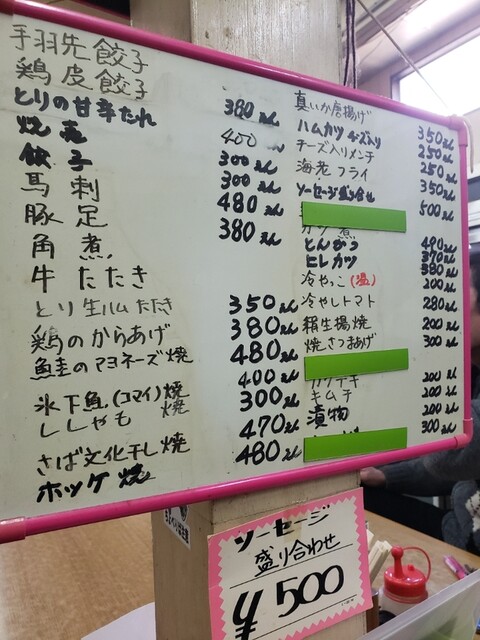 手羽先餃子
鶏皮餃子
とりの甘辛たれ
焼売
餃子
馬刺
豚足
角煮
牛たたき
とり生ハムたたき
鶏のからあげ
鮭のマヨネーズ焼
氷下魚(コマイ)焼
ししゃも焼
さば文化干し焼
ホッケ焼
380えん
400えん
300えん
300えん
480えん
380えん
350えん
380えん
480えん
400えん
300えん
470えん
480えん
真いか唐揚げ
ハムカツチーズ入り
チーズ入りメンチ
海老フライ
ソーセージ盛り合せ
とんかつ
ヒレカツ
冷やっこ(温)
冷やしトマト
稲生揚焼
焼さつまあげ
キムチ
漬物
350えん
250えん
250えん
350えん
500えん
370えん
380えん
200えん
280えん
200えん
300えん
200えん
200えん
200えん
300えん
ソーセージ
盛り合わせ
¥500